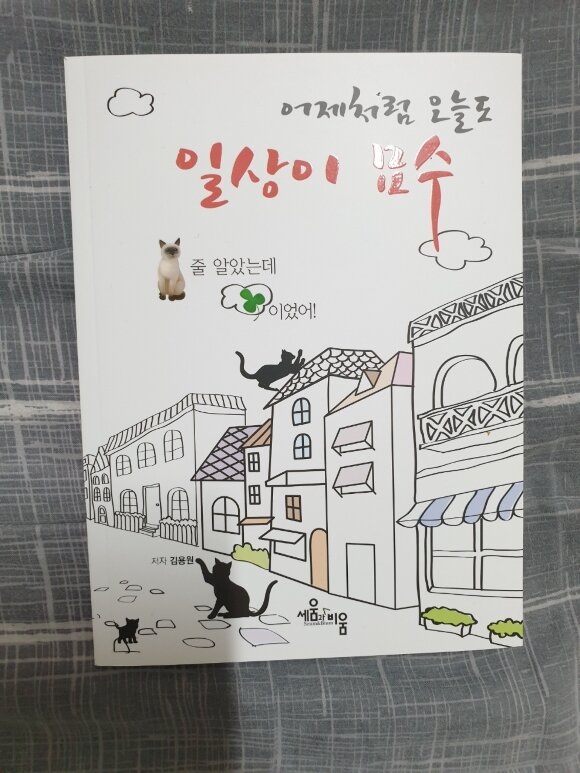 어제처럼 오늘도
일상이 묘수
줄 알았는데
이었어!
저자 김용원
세움과 비움